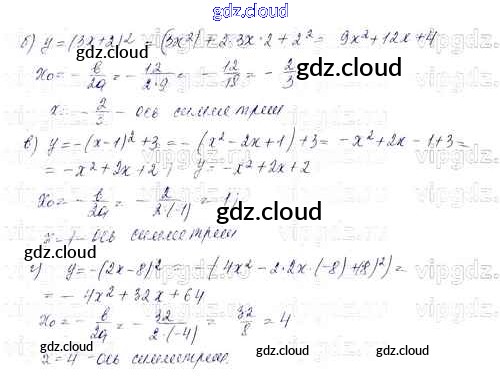 gdz.cloud
б) y=(3x+2)² = (3x²)+2·3x·2+2² = 9x²+12x+4
x₀ = - в/2a = - 12/2·9 = - 12/18 = - 2/3
gdz.cloud
gdz.cloud
x = - 2/3 - ось симметрии
в) y=-(x-1)²+3 = -(x²-2x+1)+3 = -x²+2x-1+3=
= -x²+2x+2; y=-x²+2x+2
gdz.cloud
x₀ = - в/2a = - 2/2·(-1) = 1;
gdz.cloud
x=1-ось симметрии
gdz.cloud
г) y=-(2x-8)² = -(4x²-2·2x·(-8)+8)²)=
= -4x²+32x+64
x₀ = - в/2a = - 32/2·(-4) = 32/8 = 4
gdz.cloud
x=4-ось симметрии.
gdz.cloud
gdz.cloud